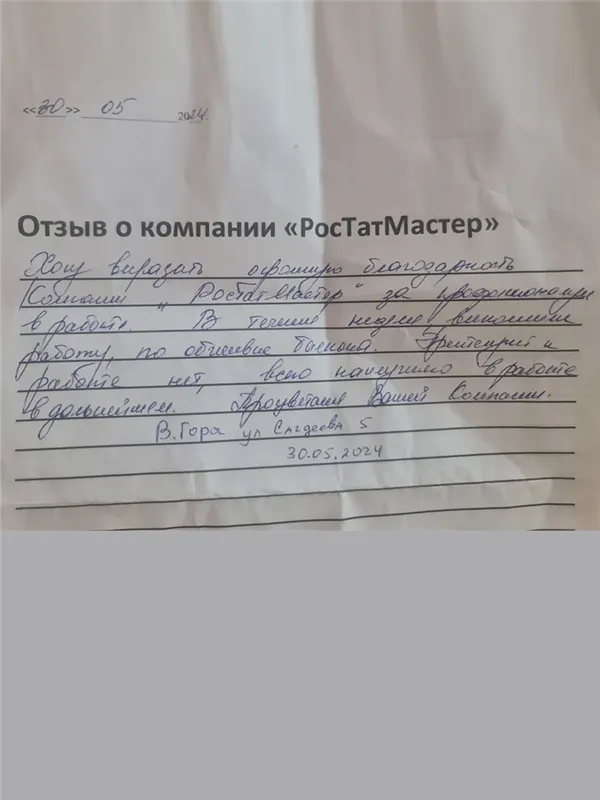 «30» 05 2024г.
Отзыв о компании «РосТатМастер»
Хочу виразить огромную благодарность
Компании "РосТатМастер" за профессионализм
в работе. В течение недели выполнили
работу, по обшивке балкона. Претензий к
работе нет, всего наилучшего в работе
в дальнейшем. Процветания Вашей Компании.
В.Гора ул Сагдеева 5
30.05.2024